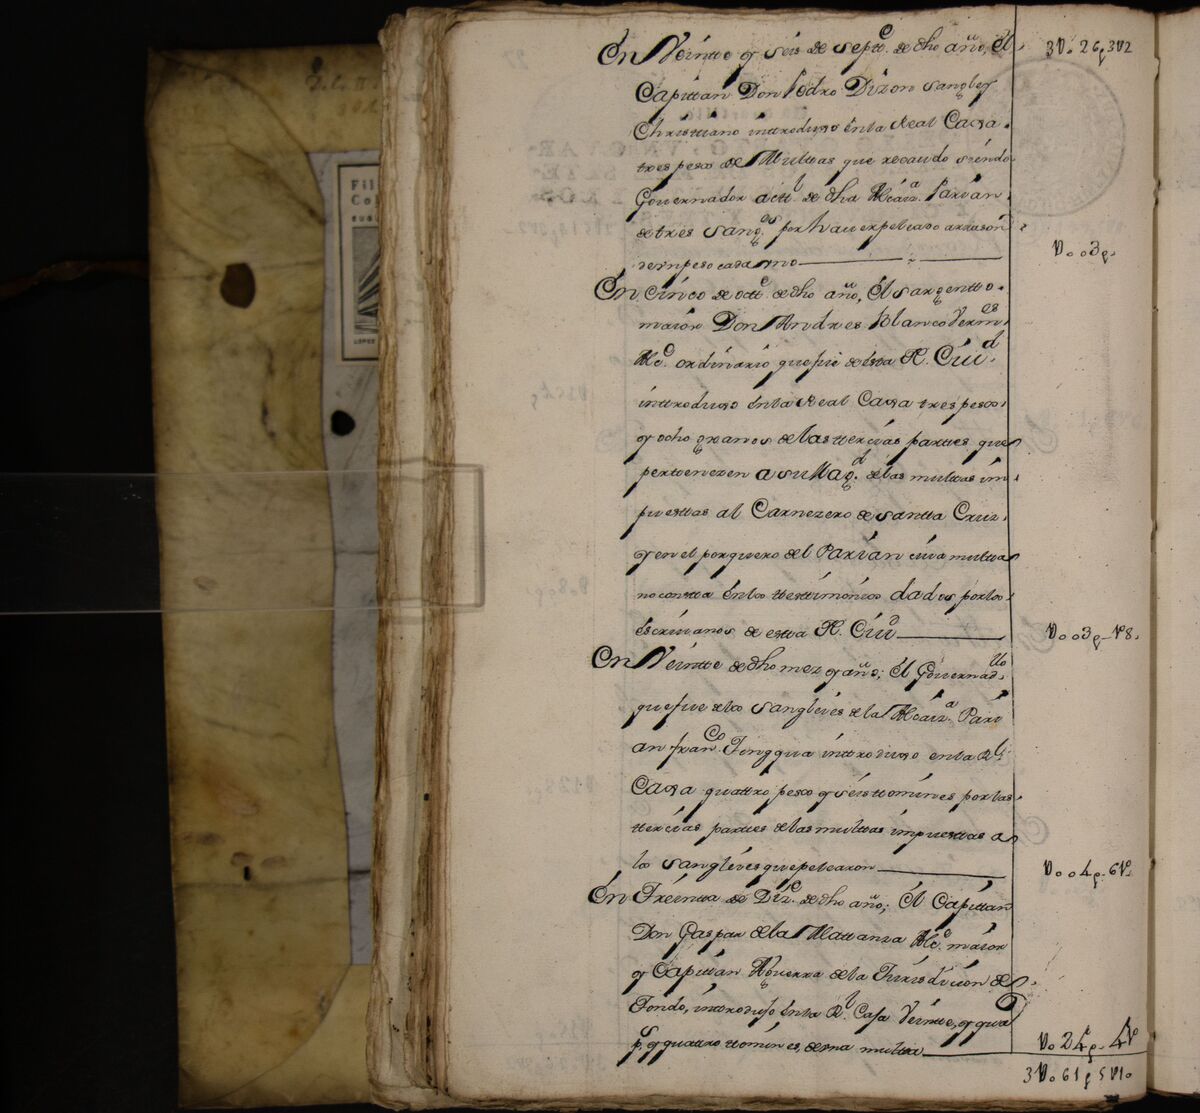 En Veintte y seis de Septt.e de dho año, El
3U026p3U2
Capittan Don Pedro Dizon Sangley
Christtiano inttroduxo en la Real Caxa
tres pesos de Multtas que recaudo siendo
Governador actt.l de dha Alcaiz.a Parian
de tres Sang.es por haver peleado a rason
de un peso cada uno
U003p.
En Cinco de Octt.e de dho año, El Sargentto
maior Don Andres Blanco Verm.es
Alc.e ordinario que fue de esta R. Ciu.d
inttroduxo en la Real Caxa tres pesos
y ocho granos de las tercias parttes que
perttenezen a su Mag.d de las multtas im
puesttas al Carnezero de Santta Cruz
y en el porquero del Parian cuia multta
no constta en los testtimonios dados por los
escrivanos de esta R. Ciu.d
U003p-U8.
En Veintte de dho mez y año; El Governad.or
que fue de los Sangleies de la Alcaiz.a Pari
an Fran.co Tongqua inttroduxo en la R.l
Caxa quattro pesos y seis tomines por las
tercias parttes de las multtas impuesttas a
los Sangleies que pelearon
U004p.6U.
En Treintta de Diz.e de dho año; El Capittan
Don Gaspar de la Mattanza Alc.e maior
y Capittan Aguerra de la Jurisdicion de
Tondo, inttroduxo en la R.l Caxa Veintte, y qua
p.s y quattro tomines, de una multta
U024p.4U
3U061p5U10